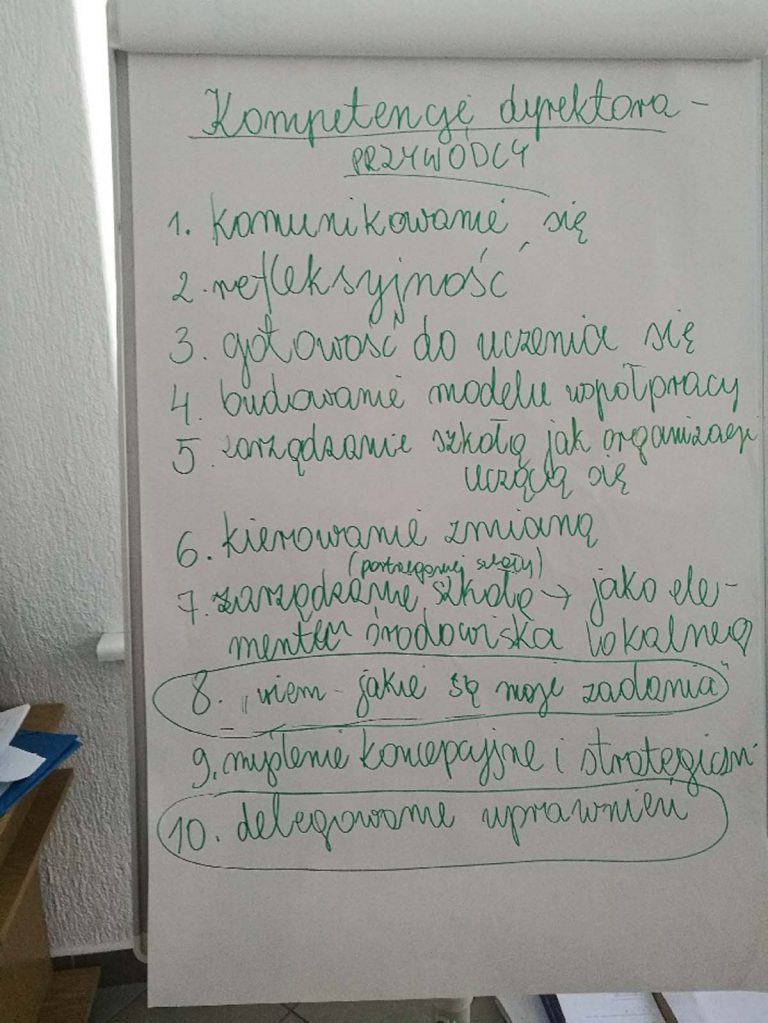 Kompetencje dyrektora -
PRZYWÓDCY
1. komunikowanie się
2. refleksyjność
3. gotowość do uczenia się
4. budowanie modelu współpracy
5. zarządzanie szkołą jak organizacją
uczącą się
6. kierowanie zmianą
(postrzeganej szkoły)
7. zarządzanie szkołą → jako ele-
mentem środowiska lokalnego
8. "wiem - jakie są moje zadania"
9. myślenie koncepcyjne i strategiczn
10. delegowanie uprawnień